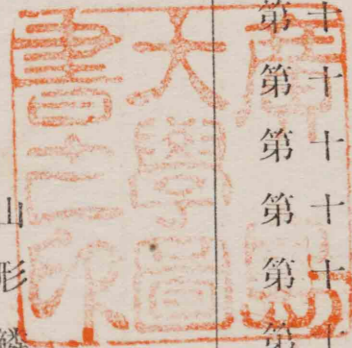 十十十十十十
第第第第第第
大學圖
書之印
山形